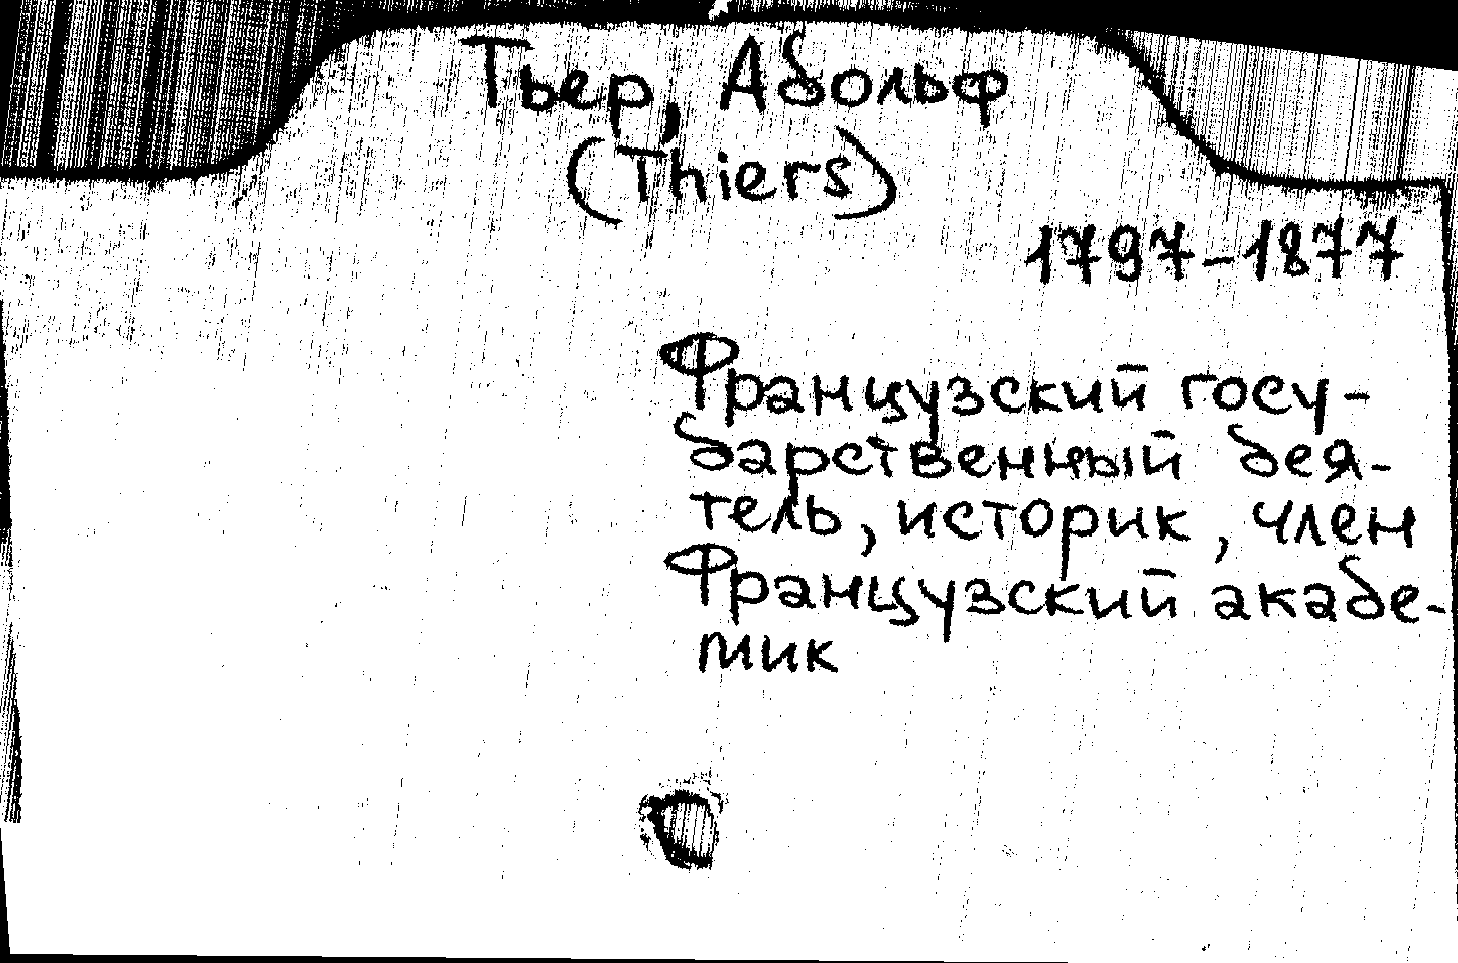 Тьер, Адольф
(Thiers)
1797-1877
Французский госу-
дарственный дея-
тель, историк, член
Французский акаде-
мик